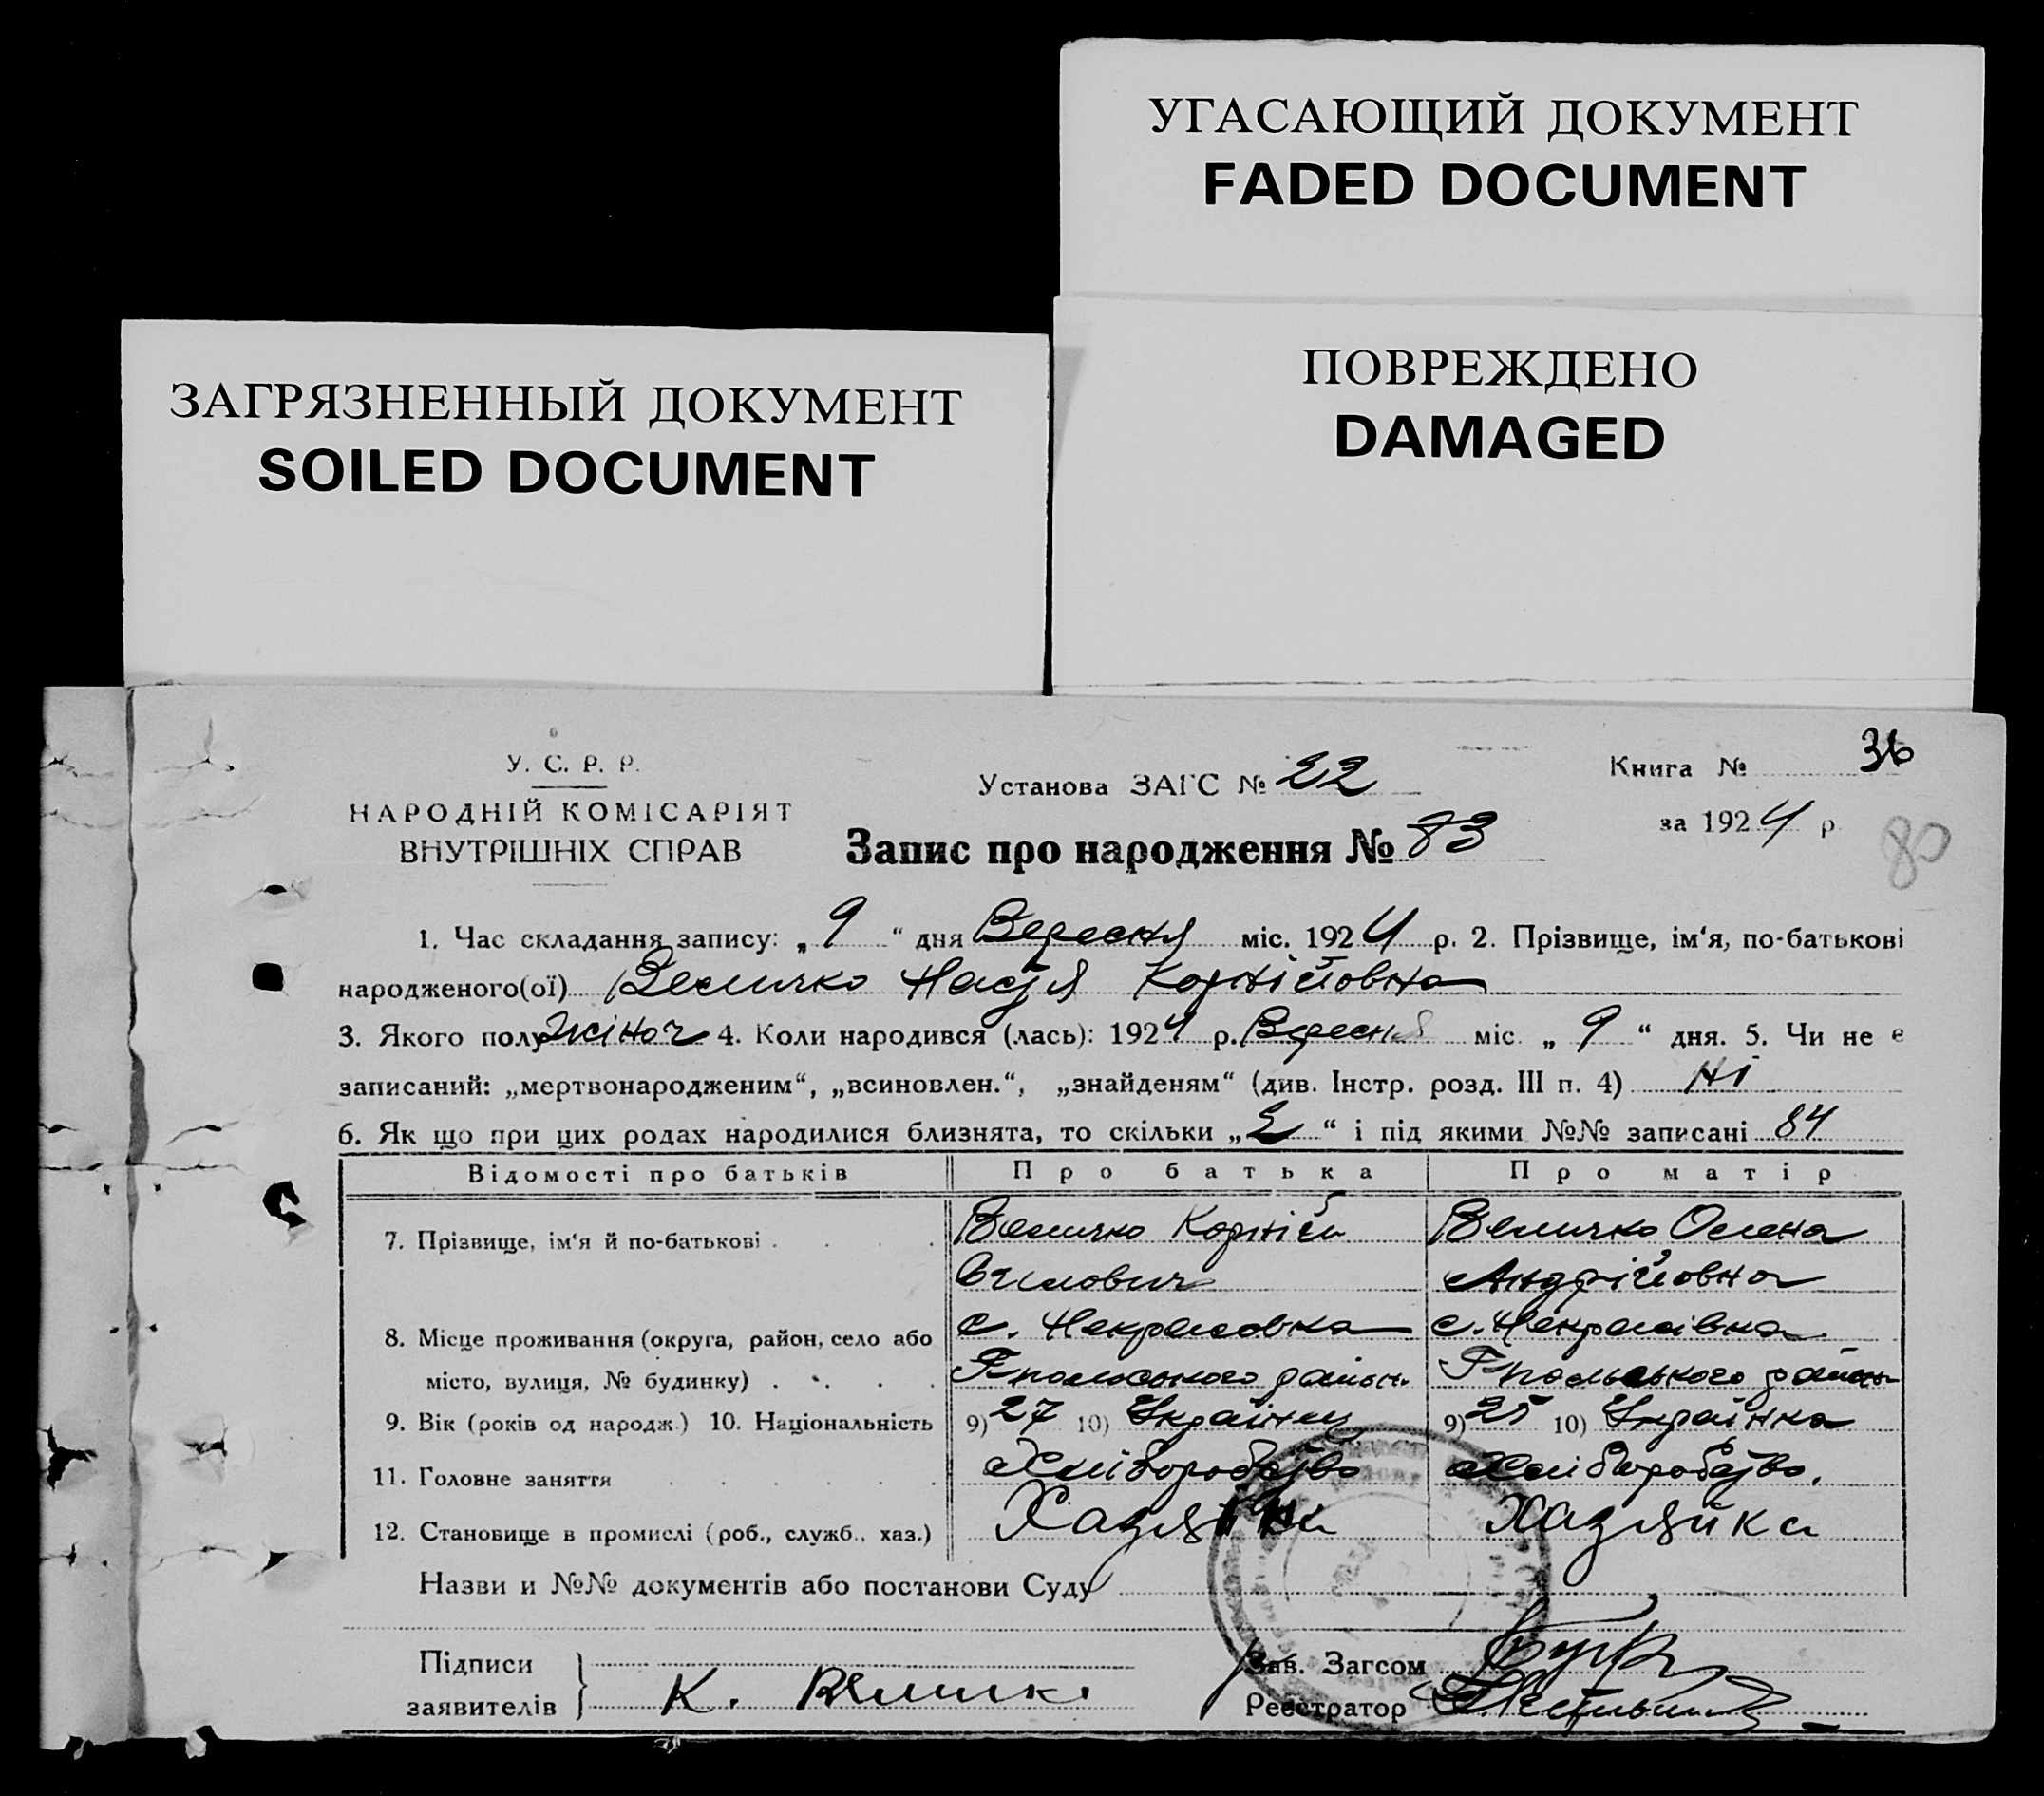 УГАСАЮЩИЙ ДОКУМЕНТ
FADED DOCUMENT
ПОВРЕЖДЕНО
DAMAGED
ЗАГРЯЗНЕННЫЙ ДОКУМЕНТ
SOILED DOCUMENT
У. С. Р. Р.
НАРОДНІЙ КОМІСАРІЯТ
ВНУТРІШНІХ СПРАВ
Установа ЗАГС № 22
Запис про народження № 83
Книга № 36
за 1924 р
80
1. Час складання запису: „9“ дня Вересня міс. 1924 р. 2. Прізвище, ім‘я, по-батькові
народженого(ої) Величко Настя Корнійовна
3. Якого полу жіноч 4. Коли народився (лась): 1924 р. Вересня міс. „9“ дня. 5. Чи не є
записаний: „мертвонародженим“, „всиновлен.“, „знайденям“ (див. Інстр. розд. III п. 4) Ні
6. Як що при цих родах народилися близнята, то скільки „2“ і під якими №№ записані 84
Відомості про батьків Про батька Про матір
7. Прізвище, ім‘я й по-батькові Величко Корній Величко Олена
Андрійовна
8. Місце проживання (округа, район, село або с. Некрасовка с. Некрасівка
місто, вулиця, № будинку)
9. Вік (років од народж.) 10. Національність 9) 27 10) Українец 9) 25 10) Українка
11. Головне заняття Хліборобство Хліборобство.
12. Становище в промислі (роб., служб., хаз.) Хазяїн Хазяйка
Назви и №№ документів або постанови Суду
Підписи
заявителів К. Величко
Зав. Загсом
Реєстратор